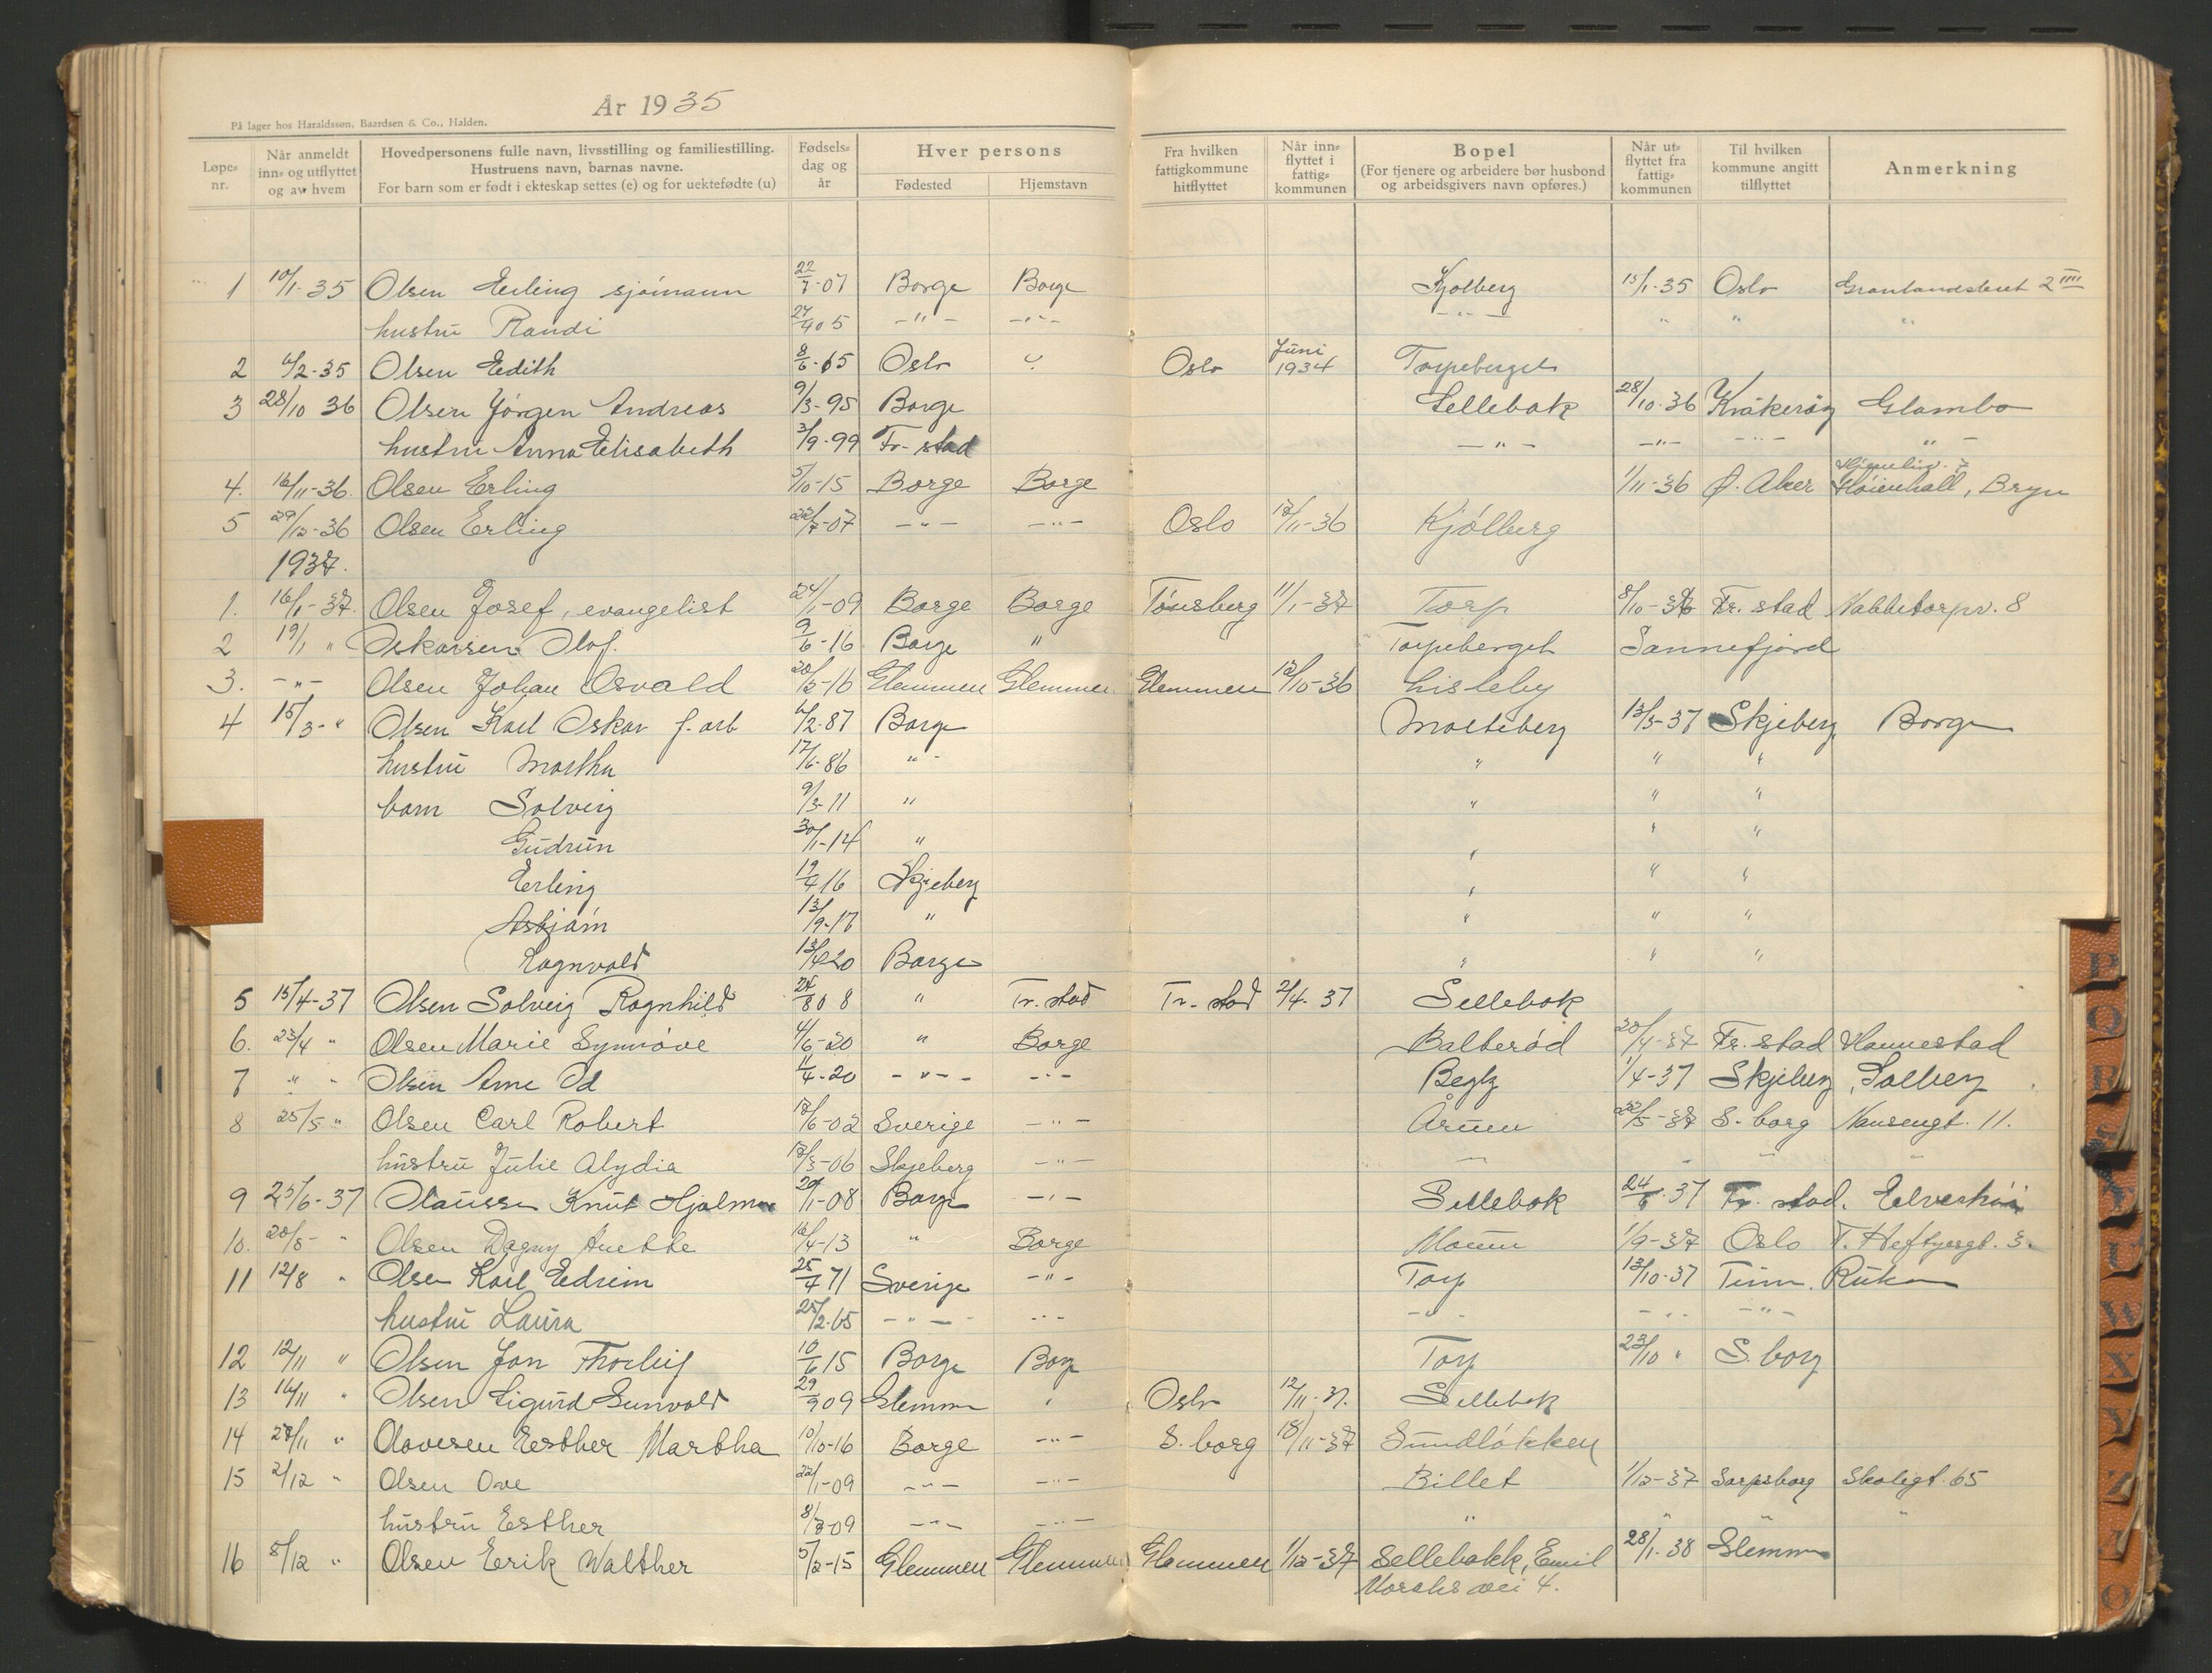 År 1935
På lager hos Haraldssøn, Baardsen & Co., Halden.
Løpe-nr. | Når anmeldt inn- og utflyttet og av hvem | Hovedpersonens fulle navn, livsstilling og familiestilling. Hustruens navn, barnas navne. For barn som er født i ekteskap settes (e) og for uektefødte (u) | Fødsels-dag og år | Hver persons Fødested | Hjemstavn | Fra hvilken fattigkommune hitflyttet | Når inn-flyttet i fattig-kommunen | Bopel (For tjenere og arbeidere bør husbond og arbeidsgivers navn opføres.) | Når ut-flyttet fra fattig-kommunen | Til hvilken kommune angitt tilflyttet | Anmerkning
1 10/1-35 Olsen Erling sjömann 22/7-07 Borge Borge Kjølberg 15/1-35 Oslo 2 IIII
hustru Randi 27/9 05 -"- -"- -"- " " "
2 6/2-35 Olsen Edith 8/6-65 Oslo Oslo Juni 1934 Torpeberget
3 28/10 36 Olsen Jörgen Andreas 9/3-95 Borge Sellebak 28/10-36 Kråkeröy Glombo
hustru Anna Elisabeth 3/9-99 Fr-stad -"- -"- -"- "-
4. 16/11-36. Olsen Erling 5/10-15 Borge Borge 1/11-36 Ø. Aker Höienhall, Bryn
5 29/12-36 Olsen Erling 22/7-07 -"- -"- Oslo 17/11-36 Kjölberg
1937.
1. 16/1-37. Olsen Josef, evangelist 24/1-09 Borge Borge Tönsberg 11/1-37 Torp 8/10-36 Fr. stad Nabbetorpv. 8
2 19/1 " Oskarsen Olaf. 9/6-16 Borge " Torpeberget Sannefjord
3. -"- Olsen Johan Osvald 20/5-16 Glemmen Glemmen Glemmen 12/10-36 Lisleby
4 15/3-" Olsen Karl Oskar f. arb 6/2-87 Borge Molteberg 13/3-37 Skjeberg Borge
hustru Martha 17/6-86 "- " " "
barn Solveig 9/3-11 " " " "
Gudrun 30/1-14 " " " "
Erling 19/4 16 Skjeberg " " "
Asbjörn 13/9-17 " " " "
Ragnvald 13/4 20 Borge " " "
5 15/4-37 Olsen Solveig Ragnhild 24/8 08 " Fr. stad Fr-stad 2/4-37 Sellebak
6. 23/4 " Olsen Marie Synnöve 4/6-20 " Borge Balteröd 20/4-37 Fr. stad Hannestad
7 " " Olsen Arne Od 1/4-20 -"- -"- Begby 1/4-37 Skjeberg, Solberg
8 25/5 " Olsen Carl Robert 17/6-02 Sverige -"- Årum 22/5-37 S. borg Nansengt. 11.
hustru Julie Alydia 17/3-06 Skjeberg -"- " " " "
9 25/6-37 Olaussen Knut Hjalmar 20/1-08 Borge -"- Sellebak 24/6-37 Fr. stad. Elverhöi
10. 20/8- " Olsen Dagny Anette 16/4-13 " Borge Moum 1/9-37 Oslo T. Heftyesgt. 3.
11 12/8 " Olsen Karl Edvin 25/4 71 Sverige -"- Torp 13/10-37 Tinn. Rukan
hustru Laura 25/2-65 -"- -"- -"- -"- -"-
12 12/11 " Olsen Jon Thorleif 10/6 15 Borge Borge Torp 23/10 " S. borg
13 16/11 " Olsen Sigurd Gunvald 29/9 09 Glemmen " Oslo 12/11-37. Sellebak
14 27/11 " Olovesen Esther Martha 10/10-16 Borge -"- S. borg 18/11-37 Sundlökken
15 2/12 " Olsen Ove 22/1-09 -"- -"- Billet 1/12-37 Sarpsborg Skoligt. 65
hustru Esther 8/3-09 -"- -"- " " "
16 8/12 " Olsen Erik Walther 5/2-15 Glemmen Glemmen Glemmen 1/12-37 Sellebakk, Emil 28/1-38 Glemmen
vei 4.